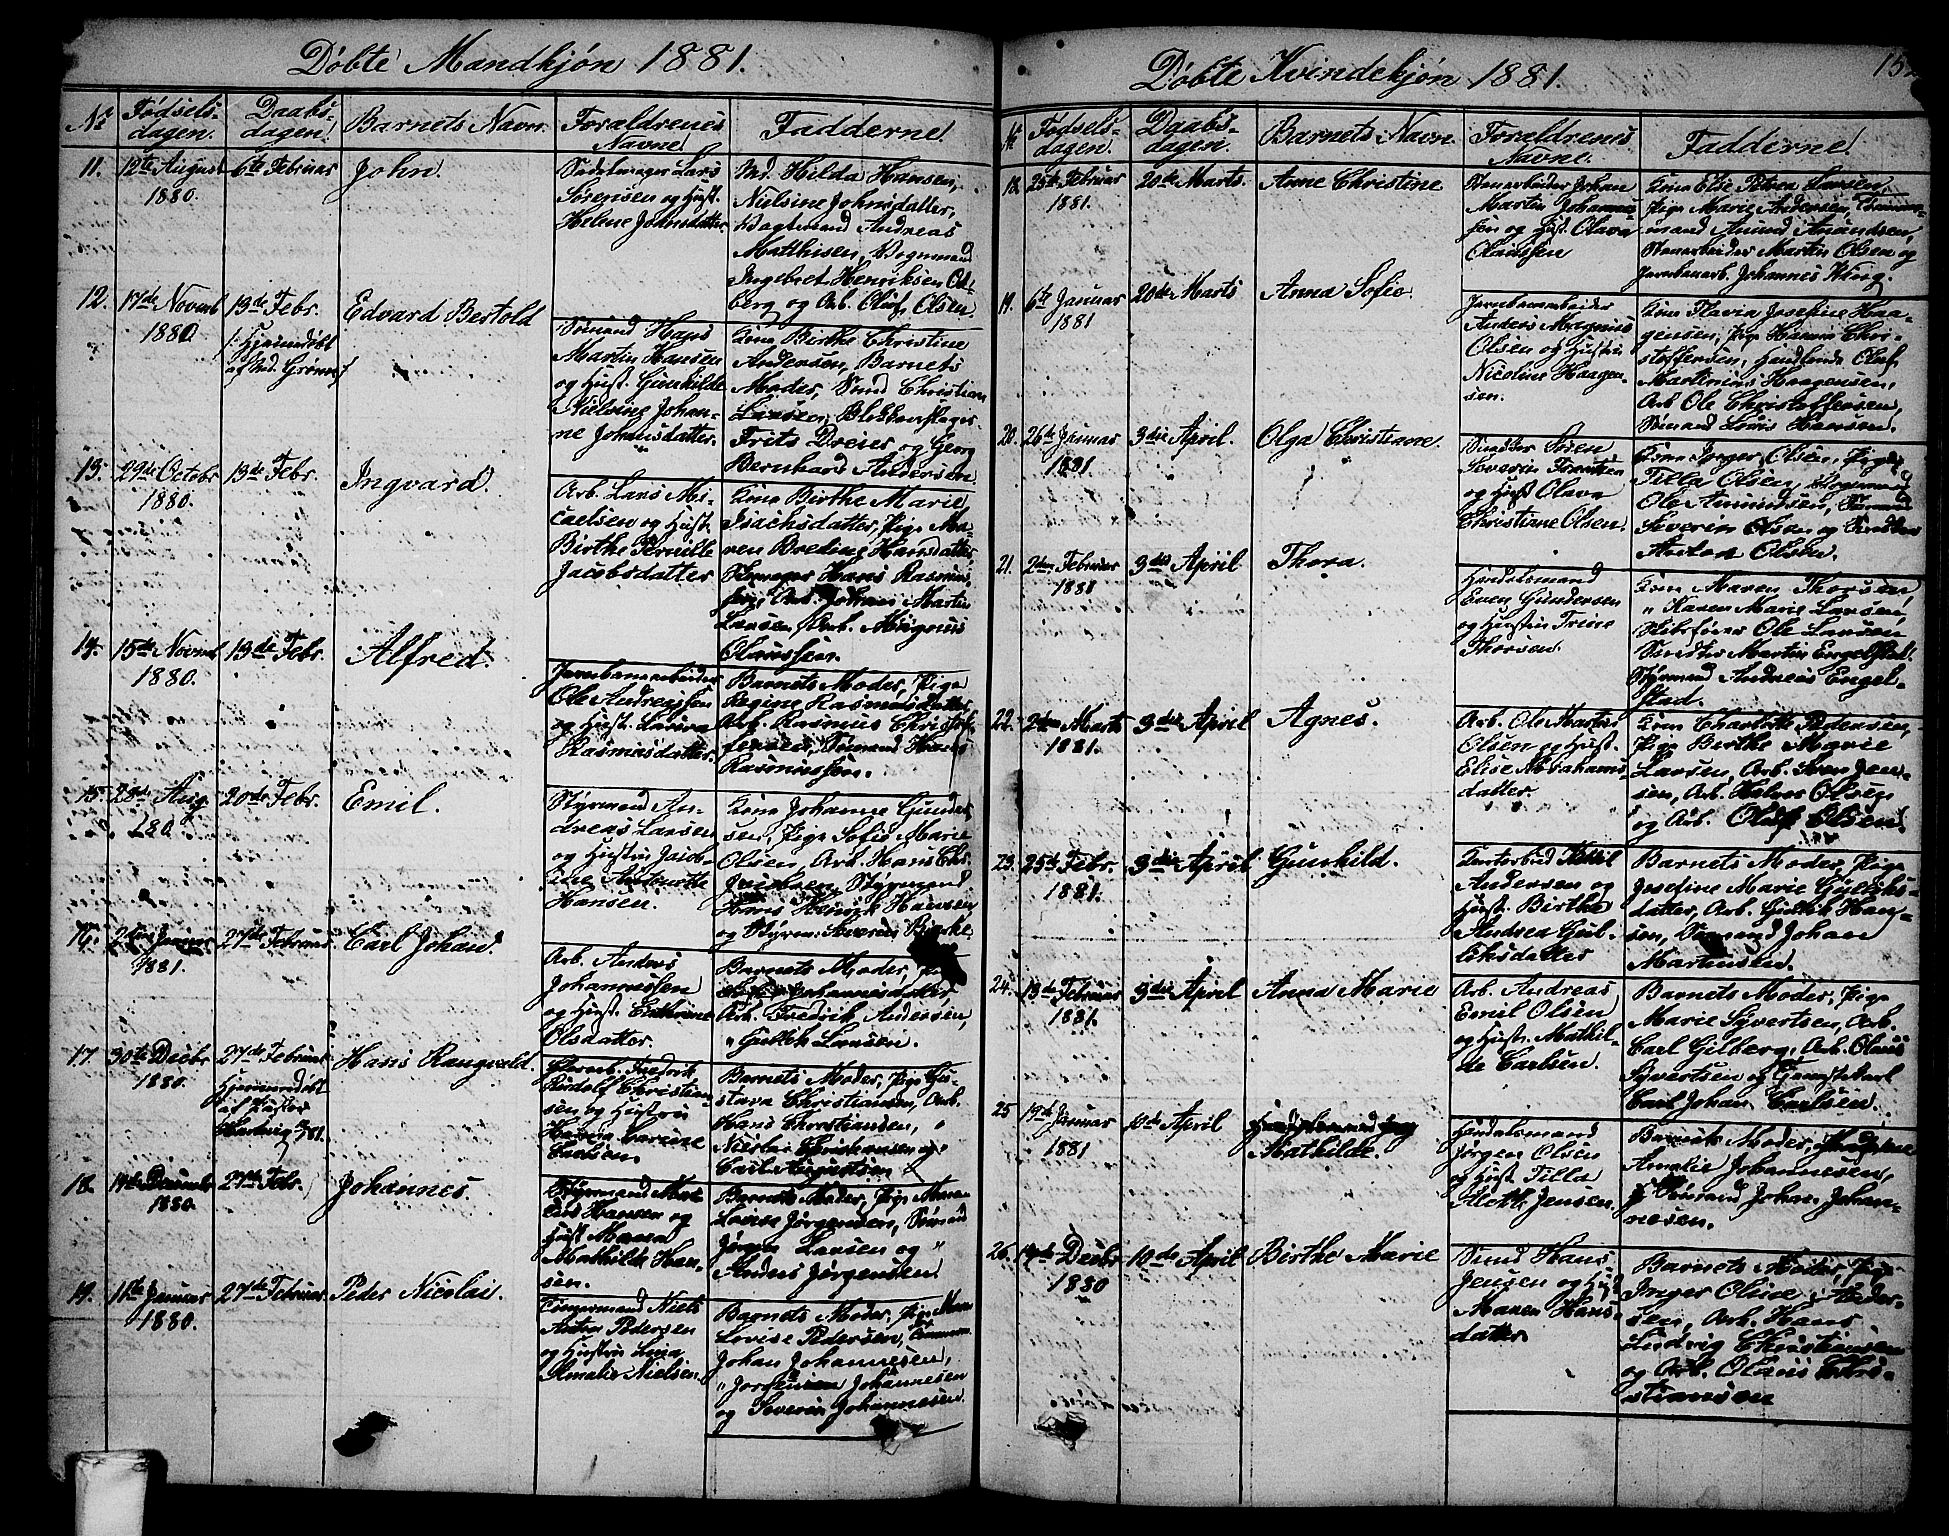 Døbte Mandkjøn 1881.
No Fødsels-dagen. Daabs-dagen. Barnets Navn. Forældrenes Navne Fadderne.
11. 12te August 1880. 6te Februar John.
Sadelmager Lars
Sørensen og Hust.
Helene Johnsdatter
Md. Hilda Hansen,
Nielsine Johnsdatter,
Vagtmand Andreas
Mathisen, Vognmand
Ingebret Henriksen
berg og Arb. Oluf Olsen
12. 17de Novmb 1880 13de Febr. Edvard Bertold
Hjemmedøbt
af Md. Grønn
Sømand Hans
Martin Hansen
og Hust. Gunhilde
Nielsine Johan-
ne Johansdatter.
Kone Birthe Christine
Andersen, Barnets
Moder, Smd Christian
Larsen, Blikkenslager
Frits Dreier og Georg
Bernhard Andersen
13. 29de Octobr 1880. 13de Febr. Ingvard.
Arb. Lars Mi-
caelsen og Hust.
Birthe Pernille
Jacobsdatter
Kone Birthe Marie
Isachsdatter, Pige Ma-
ren Bredine Hansdatter
Hans Rasmus-
sen, Arb. Johan Martin
Larsen, Arb. Magnus
Claussen.
14. 15de Novmb 1880. 13de Febr. Alfred.
Jernbanearbeider
Ole Andreassen
og Hust. Lovise
Rasmusdatter.
Barnets Moder, Pige
Regine Rasmusdatter
Arb. Rasmus Christof-
fersen, Sømand Hans
Rasmussen.
15. 23de Aug. 1880. 20de Febr. Emil.
Styrmand An-
dreas Larsen
og Hustru Jacob-
ine Antonette
Hansen.
Kone Johanne Gunder-
sen, Pige Sofie Marie
Olsen, Arb. Hans Chr.
Jacobsen, Styrmand
Hans Henrik Hansen
og Styrm. Severin Bjerke.
16. 2den Januar 1881. 27de Februar Carl Johan.
Arb. Anders
Johannessen
og Hust. Cathrine
Olsdatter.
Barnets Moder, Pige
Johannesdatter,
Arb. Fredrik Andersen,
" Gullik Larsen.
17. 30te Decbr 1880. 27de Februar Hans Rangvald
Hjemmedøbt
af Pastor
Hartvig
Fredrik
Rudolf Christian-
sen og Hustru
Hanna Karine
Carlsen.
Barnets Moder, Pige Gu-
stava Christiansen, Arb.
Hans Christiansen,
Nicolai Christiansen og
Carl Augustsen
18. 14de Decemb 1880. 27de Febr. Johannes.
Styrmand Mat-
hias Hansen og
Hust. Maren
Mathilde Han-
sen.
Barnets Moder, Pige Maren
Lovise Jørgensen, Sømand
Jørgen Larsen og "
Anders Jørgensen
19. 11te Januar 1880. 27de Februar Peder Nicolai.
Tømmermand Niels
Anton Pedersen
og Hustru Lina
Amalie Nielsen.
Barnets Moder, Pige Maren
Lovise Pedersen, Tømmerm.
Johan Johannesen,
" Jørgensen Johannesen
og Severin Johannesen.
Døbte Kvindekjøn 1881.
152
No Fødsels-dagen. Daabs-dagen. Barnets Navn Forældrenes Navne. Fadderne
18. 25de Februar 1881. 20de Marts. Anne Christine
Stenarbeider Johan
Martin Johannes-
sen og Hust. Olava
Claussen
Kone Elise Petrea Larsen,
Pige Marie Andersen, Tømmer-
mand Amund Amundsen,
Stenarbeider Martin Olsen og
Jernbanearb. Johannes Wing.
19. 6te Januar 1881 20de Marts Anna Sofie.
Jernbanearbeider
Anders Magnus
Olsen og Hustru
Nicoline Haagen-
sen.
Kone Flavia Josefine Haa-
gensen, Pige Hanna Chri-
stoffersen, Handlende Oluf
Martinius Haagensen,
Arb. Ole Christoffersen,
Sømand Lovis Hansen.
20. 26de Januar 1881. 3die April. Olga Christiane.
Smed Søren
Severin
og Hust Olava
Christiane Olsen.
Kone Inger Olsen, Pige
Tilla Olsen, Vognmand
Ole Amundsen, Sømand
Severin Olsen og
Anton Olsen.
21. 2den Februar 1881 3die April Thora.
Handelsmand
Even Gundersen
og Hustru Trine
Thorsen.
Kone Maren Thorsen
" Karen Marie Larsen,
Skibsfører Ole Larsen
Martin Engelstad.
Styrmand Andreas Engel-
stad.
22. 2den Marts 1881. 3die April Agnes.
Arb. Ole Martin
Olsen og Hust.
Elise Abrahams
datter.
Kone Charlotte Pedersen,
Pige Berthe Marie
Larsen, Arb. Sven Jen-
sen, Arb. Halvor Olsen
og Arb. Oluf Olsen.
23. 25de Febr. 1881. 3die April Gunhild.
Contorbud Kittil
Andersen og
Hust. Birthe
Andrea Gul-
liksdatter
Barnets Moder, Pige
Josefine Marie Gulliks-
datter, Arb. Gullik Han-
sen, Sømand Johan
Martinsen.
24. 13de Februar 1881. 3die April Anna Marie
Arb. Andreas
Emil Olsen
og Hustr. Mathil-
de Carlsen.
Barnets Moder, Pige
Marie Syvertsen, Arb.
Carl Gilberg, Arb. Olaus
Syvertsen og
Carl Johan Carlsen.
25 19de Januar 1881 10de April Mathilde.
Handelsmand
Jørgen Olsen
og Hust Tilla
Aletta Jensen.
Barnets Moder,
Amalie Johannesen,
Sømand Johan Johan-
nesen.
26. 14de Decbr 1880 10de April Birthe Marie
Smd Hans
Jensen og Hust
Maren Hans-
datter.
Barnets Moder, Pige
Inger Oline Ander-
sen, Arb. Hans
Ludvig Christiansen
og Arb. Olaus Chri-
stiansen